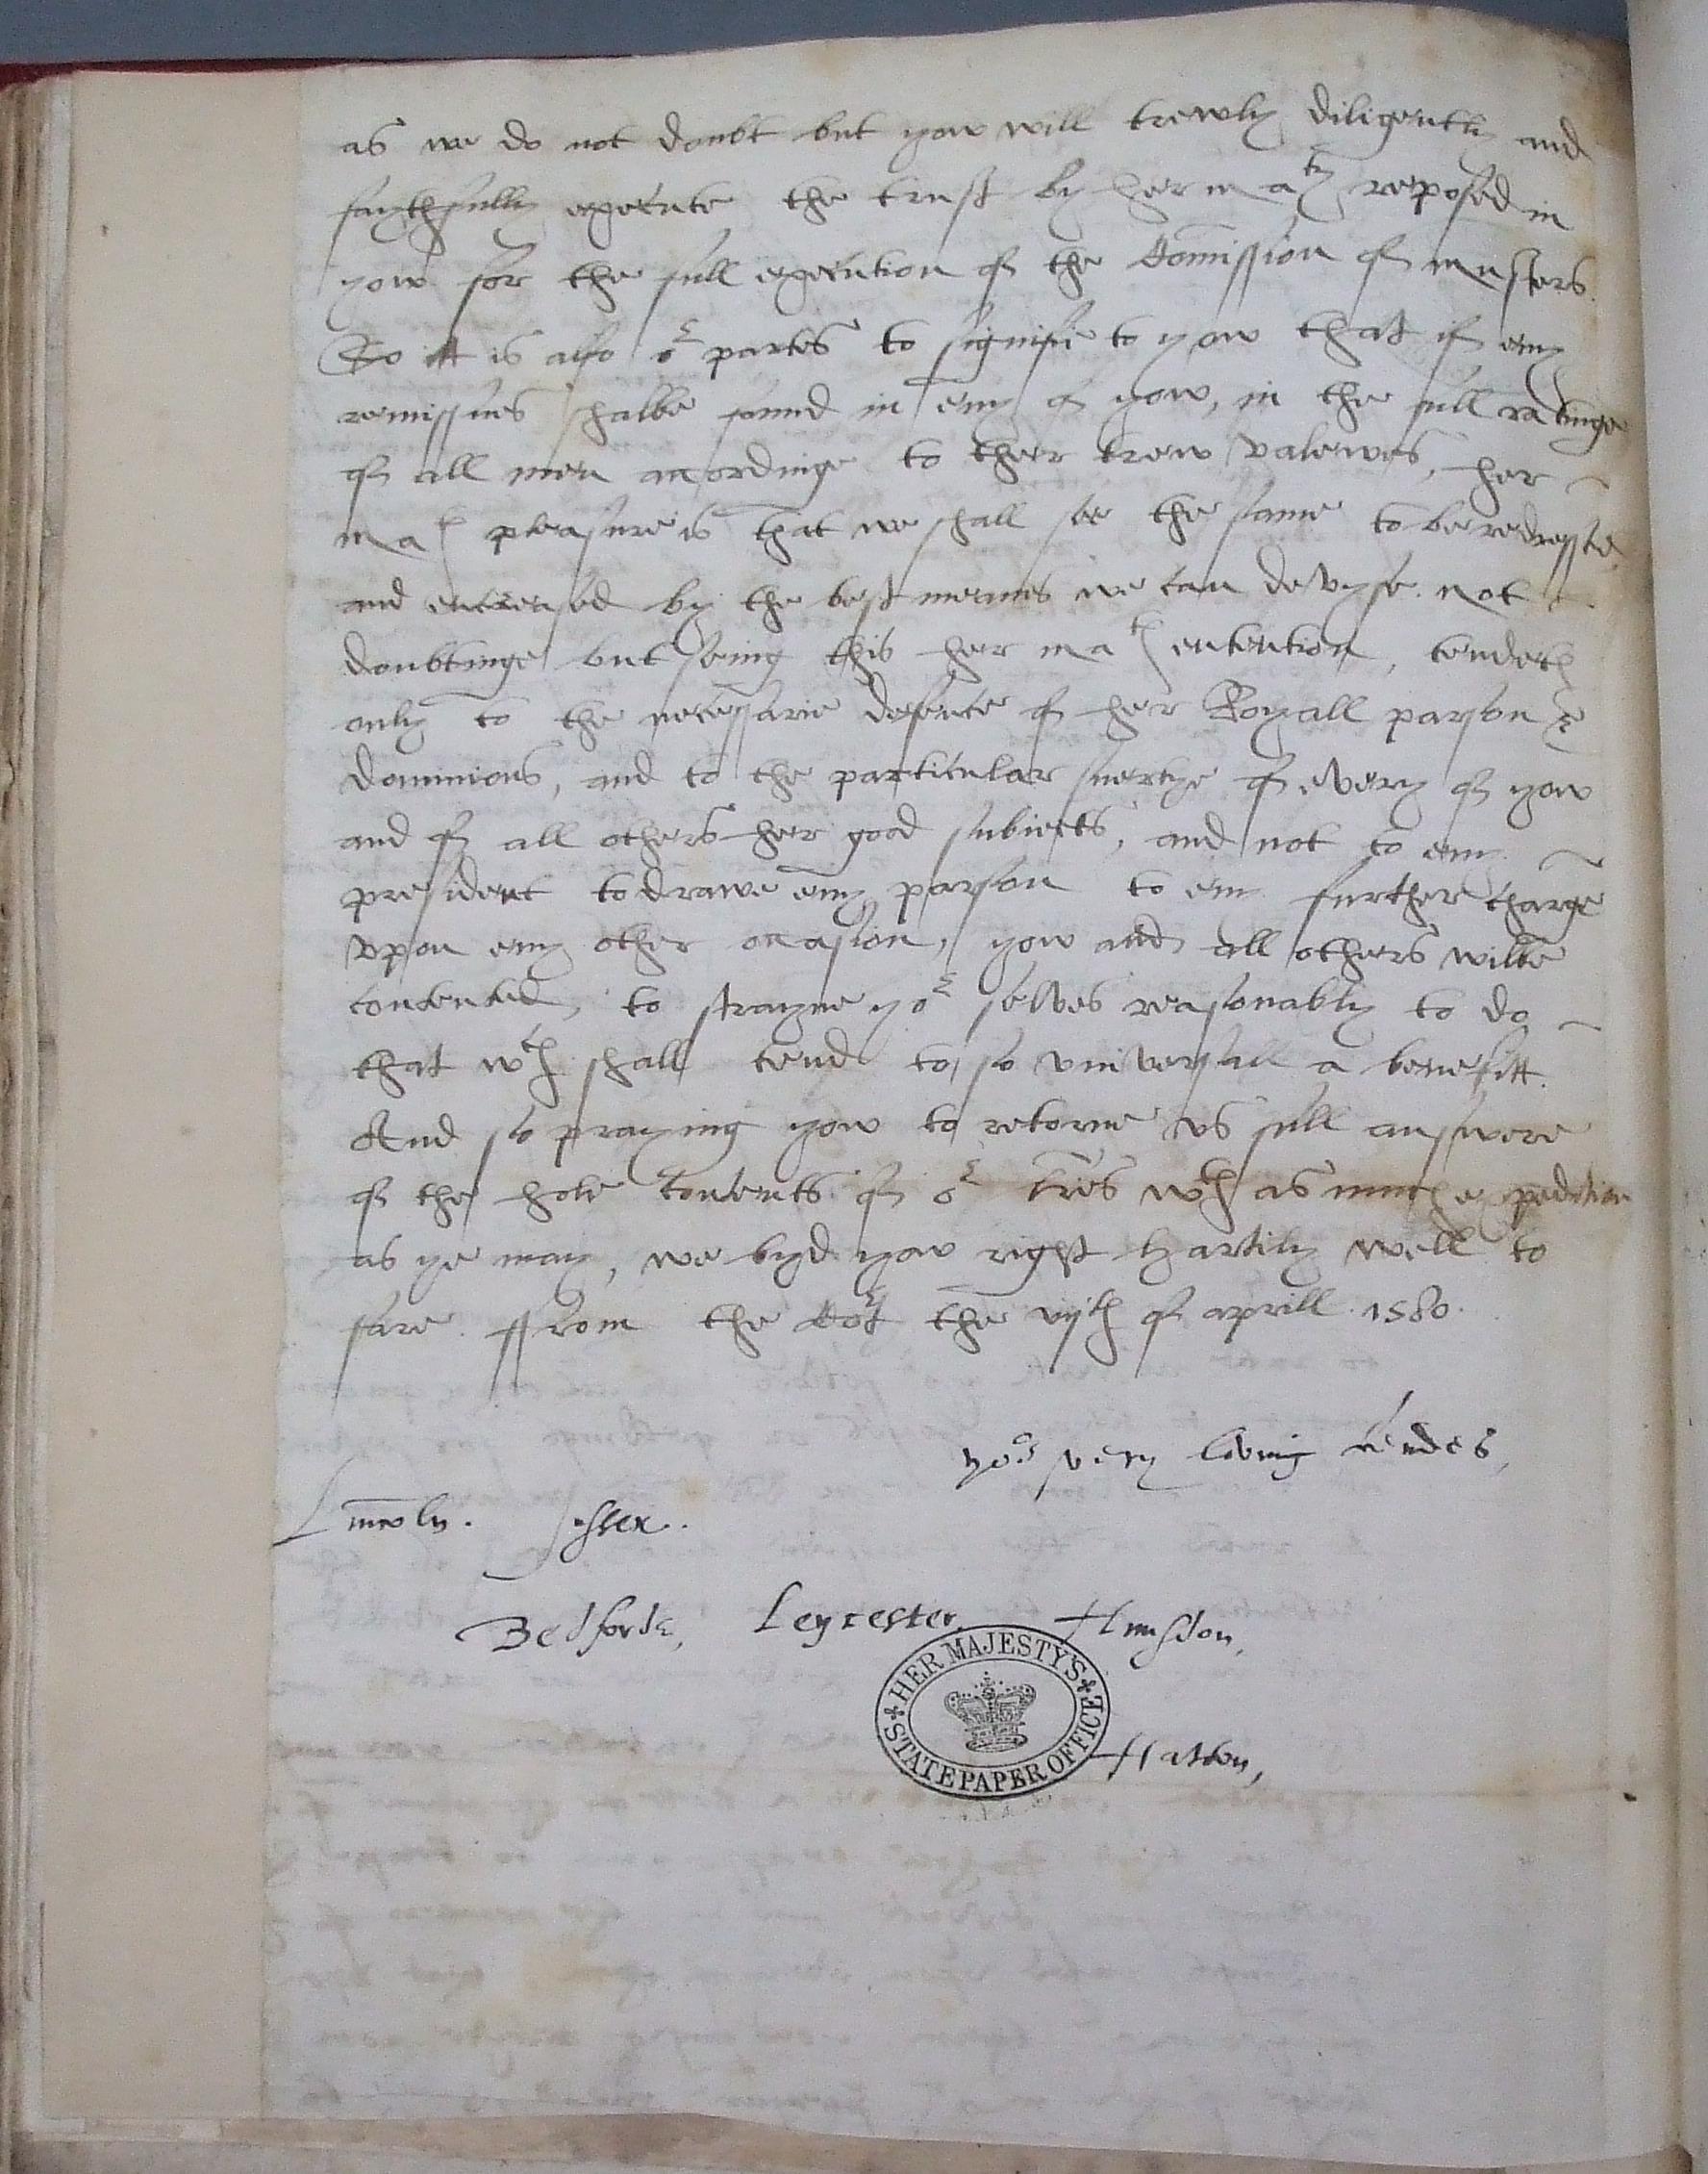 as we do not doubt but yow will trewly diligently and
faythfully execute the trust by her ma^ty reposed in
yow for the full execution of the Comission of musters.
So itt is also o^r partes to signifie to yow that if eny
remissnes shalbe found in eny of yow, in the full ratinge
of all men accordinge to ther trew valewes, her
ma^ts pleasure is that we shall see the same to be redressed,
and encresed by the best meanes we can devyse. not
doubtinge but seing this her ma^ts entention, tendeth
only to the necessarie defence of her Royall parson &
dominions, and to the particular suertye of every of yow
and of all others her good subiects, and not to eny
president to drawe eny parson to eny further charge
vpon eny other occasion, yow and all others wilbe
contented, to strayne yo^r selves reasonably to do
that w^ch shall tend to so vniversall a benefitt.
And so praying yow to retorne vs full answere
of the hole contents of o^r lres w^th as much expedition
as ye may, we byd yow right hartily well to
fare. ffrom the Co^rt the vij^th of aprill 1580.
yo^r very loving frendes,
Lincoln. Sussex.
Bedforde, Leycester, Hunsdon,
HER MAJESTY'S STATE PAPER OFFICE
Hatton,